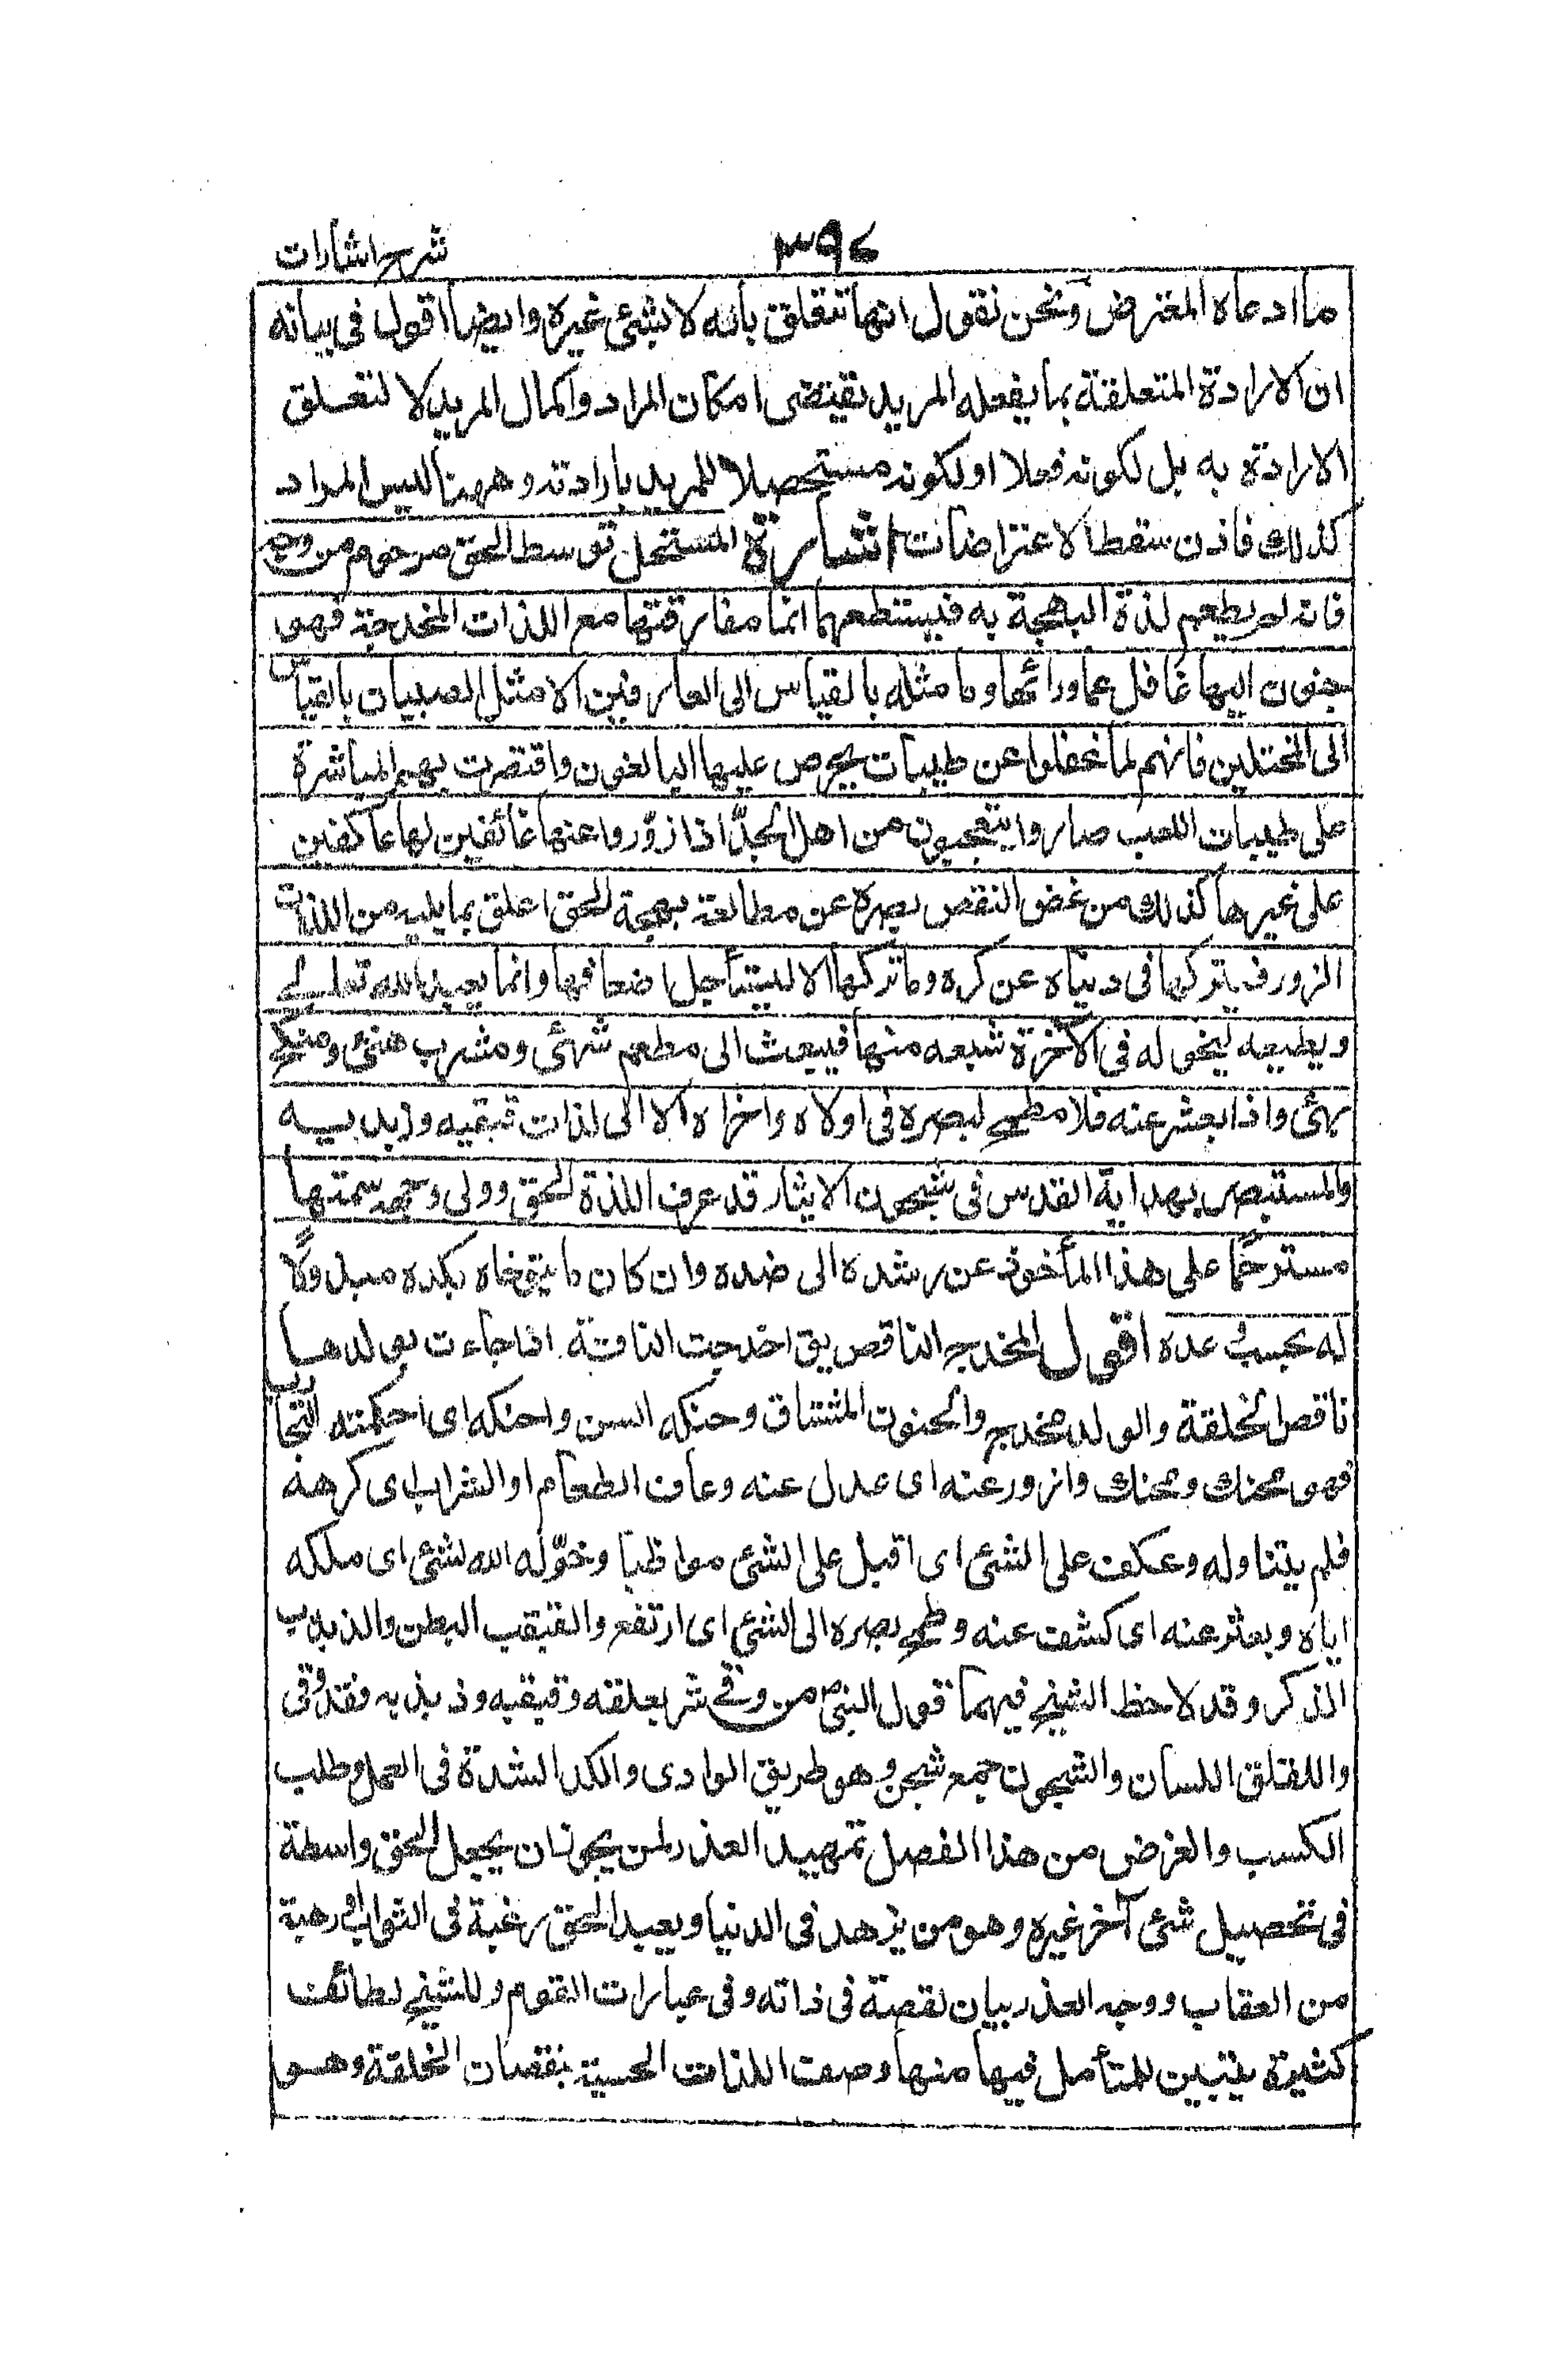 ۳۹۶ شرح اشارات
ما ادعاه المعترض ونحن نقول انها تتعلق بالله لا بشئ غيره وايضا اقول فى بيانه
ان الارادة المتعلقة بما يفعله المريد يقتضى امكان المراد واكمال المريد لا لتعلق
الارادة به بل لكونه فعلا او لكونه مستحصلا للمريد بارادته وههنا ليس المراد
كذلك فاذن سقط الاعتراضات اشارة المستحل توسط الحق مرحوم من وجه
فانه لم يطعم لذة البهجة به فيستطعمها انما مفارقتها مع اللذات المخدجة فهو
حنون اليها غافل عما ورائها وما مثله بالقياس الى العارفين الا مثل الصبيان بالقياس
الى المحتنكين فانهم لما غفلوا عن طيبات يحرص عليها البالغون واقتصرت بهم المباشرة
على طيبات اللعب صاروا يتعجبون من اهل الجدّ اذا ازوّروا عنها عائفين لها عاكفين
على غيرها كذلك من غض النقص بصره عن مطالعة بهجة الحق اعلق بما يليه من اللذات
الزور فيتركها فى دنياه عن كره وما تركها الا ليستأجل اضعافها وانما يعبد الله تعالى
ويطيعه ليخوله فى الآخرة شبعه منها فيبعث الى مطعم شهئ ومشرب هنئ ومنكح
بهئ واذا بعثر عنه فلا مطمح لبصره فى اولاه واخراه الا الى لذات قبقبه وذبذبه
والمستبصر بهداية القدس فى شجون الايثار قد عرف اللذة الحق وولى وجهه سمتها
مسترحما على هذا المأخوذ عن رشده الى ضده وان كان ما يتوخاه بكده مبذولًا
له بحسب عده اقول المخدج الناقص يق اخدجت الناقة اذا جاءت بولدها
ناقص الخلقة والولد مخدج والحنون المشتاق وحنكه السن واحنكه اى احكمته التجارب
فهو محنك ومحنك وازور عنه اى عدل عنه وعاف الطعام او الشراب اى كرهه
فلم يتناوله وعكف على الشئ اى اقبل على الشئ مواظبا وخوّله الله لشئ اى ملكه
اياه وبعثر عنه اى كشف عنه وطمح بصره الى الشئ اى ارتفع والقبقب البطن والذبذب
الذكر وقد لاحظ الشيخ فيهما قول النبى ص من وقى شر لقلقه وقبقبه وذبذبه فقد وقى
واللقلق اللسان والشجون جمع شجن وهو طريق الوادى والكد الشدة فى العمل وطلب
الكسب والغرض من هذا الفصل تمهيد العذر لمن يجوز ان يجعل الحق واسطة
فى تحصيل شئ آخر غيره وهو من يزهد فى الدنيا ويعبد الحق رغبة فى الثواب او رهبة
من العقاب ووجه العذر بيان نقصه فى ذاته وفى عبارات القوم وللشيخ لطائف
كثيرة يتبين للمتأمل فيها منها وصف اللذات الحسية بنقصان الخلقة وهو